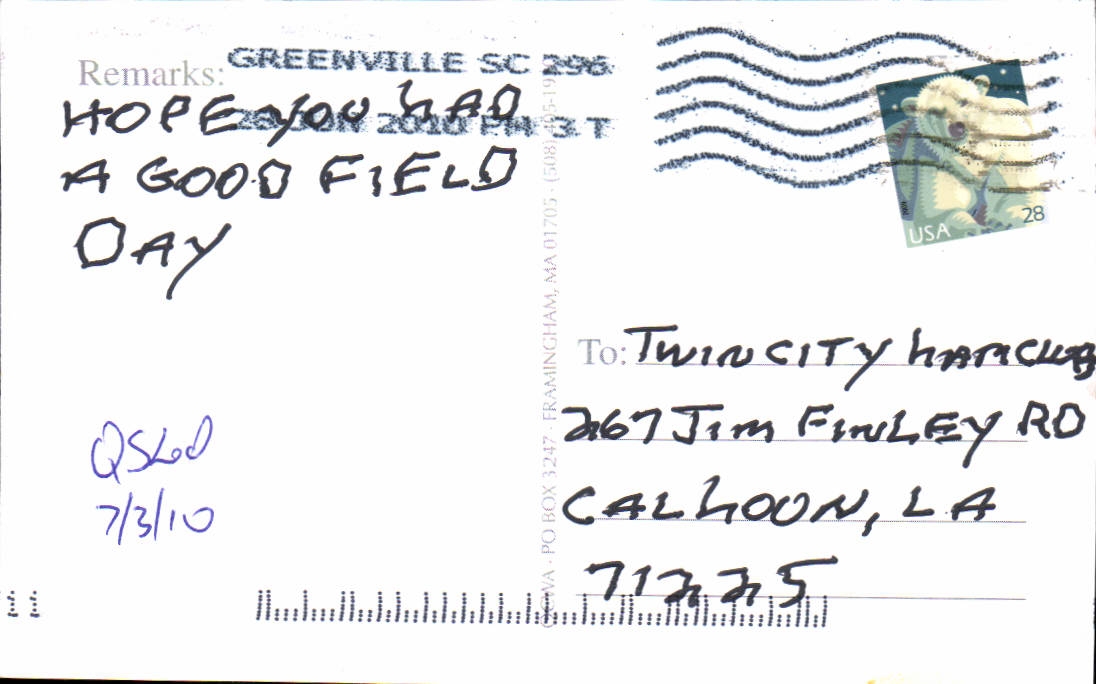 Remarks:
GREENVILLE SC 296
28 JUN 2010 PM 3 T
HOPE YOU HAD
A GOOD FIELD
DAY
QSLed
7/3/10
USA
28
To: TWIN CITY HAM CLUB
267 Jim FINLEY RD
CALHOON, LA
71225
PO BOX 3247 · FRAMINGHAM, MA 01705 · (508)